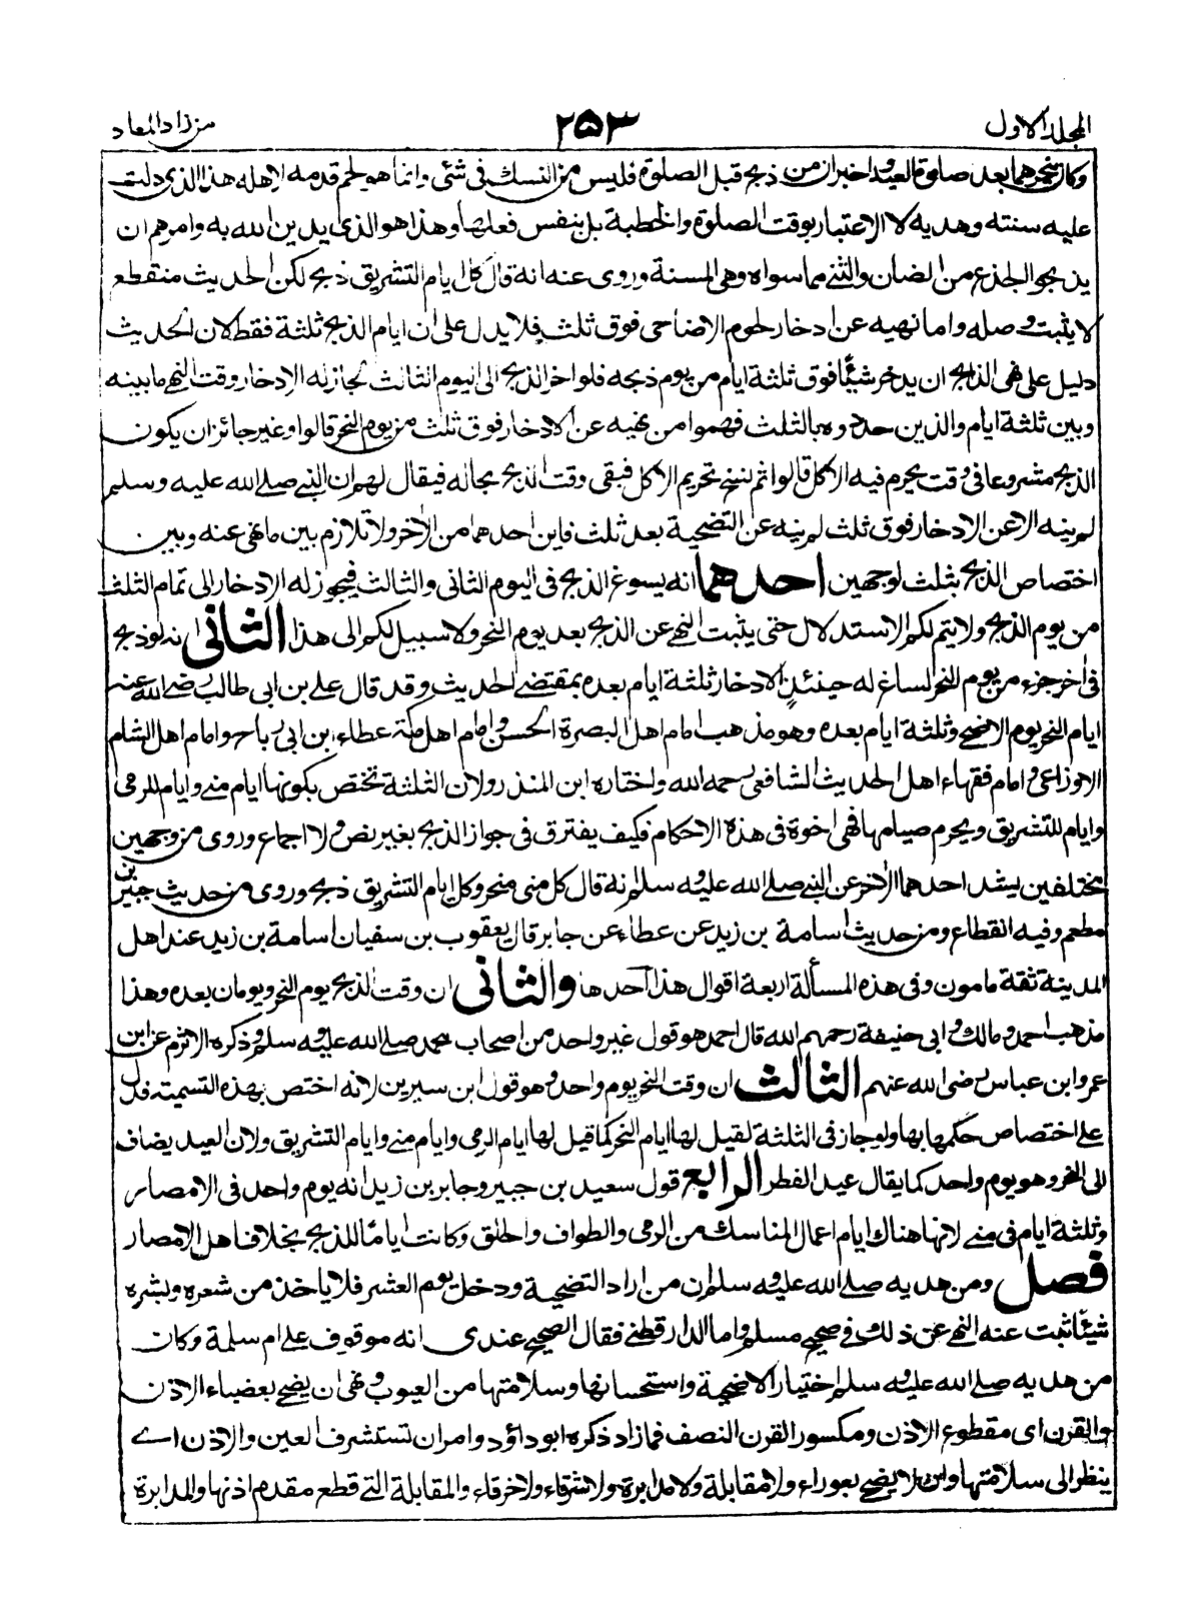 المجلد الاول
۲۵۳
من زاد المعاد
وكان ينحرهما بعد صلوة العيد واخبر ان من ذبح قبل الصلوة فليس من النسك فى شئ وانما هو لحم قدمه لاهله هذا الذى دلت
عليه سنته وهديه لا الاعتبار بوقت الصلوة والخطبة بل بنفس فعلها وهذا هو الذى يدين الله به وامرهم ان
يذبحوا الجذع من الضان والثنى مما سواه وهى المسنة وروى عنه انه قال كل ايام التشريق ذبح لكن الحديث منقطع
لا يثبت وصله واما نهيه عن ادخار لحوم الاضاحى فوق ثلث فلا يدل على ان ايام الذبح ثلثة فقط لان الحديث
دليل على نهى الذابح ان يدخر شيئا فوق ثلثة ايام من يوم ذبحه فلو اخر الذبح الى اليوم الثالث لجاز له الادخار وقت النهى ما بينه
وبين ثلثة ايام والذين حدوه بالثلث فهموا من نهيه عن الادخار فوق ثلث من يوم النحر قالوا وغير جائز ان يكون
الذبح مشروعا فى وقت يحرم فيه الاكل قالوا ثم نسخ تحريم الاكل فبقى وقت الذبح بحاله فيقال لهم ان النبى صلى الله عليه وسلم
لم ينه الا عن الادخار فوق ثلث لم ينه عن التضحية بعد ثلث فاين احدهما من الآخر ولا تلازم بين ما نهى عنه وبين
اختصاص الذبح بثلث لوجهين احدهما انه يسوغ الذبح فى اليوم الثانى والثالث فيجوز له الادخار الى تمام الثلث
من يوم الذبح ولا يتم لكم الاستدلال حتى يثبت النهى عن الذبح بعد يوم النحر ولا سبيل لكم الى هذا الثانى انه لو ذبح
فى اخر جزء من يوم النحر لساغ له حينئذ الادخار ثلثة ايام بعده بمقتضى الحديث وقد قال على بن ابى طالب رضى الله عنه
ايام النحر يوم الاضحى وثلثة ايام بعده وهو مذهب امام اهل البصرة الحسن وامام اهل مكة عطاء ابن ابى رباح وامام اهل الشام
الاوزاعى وامام فقهاء اهل الحديث الشافعى رحمه الله واختاره ابن المنذر ولان الثلثة تختص بكونها ايام منى وايام للرمى
وايام للتشريق ويحرم صيامها فهى اخوة فى هذه الاحكام فكيف يفترق فى جواز الذبح بغير نص ولا اجماع وروى من وجهين
مختلفين يشد احدهما الآخر عن النبى صلى الله عليه وسلم انه قال كل منى منحر وكل ايام التشريق ذبح وروى من حديث جبير بن
مطعم وفيه انقطاع ومن حديث اسامة بن زيد عن عطاء عن جابر قال يعقوب بن سفيان اسامة بن زيد عند اهل
المدينة ثقة مامون وفى هذه المسألة اربعة اقوال هذا احدها والثانى ان وقت الذبح يوم النحر ويومان بعده وهذا
مذهب احمد ومالك وابى حنيفة رحمهم الله قال احمد هو قول غير واحد من اصحاب محمد صلى الله عليه وسلم وذكره الاثرم عن ابن
عمر وابن عباس رضى الله عنهم الثالث ان وقت النحر يوم واحد وهو قول ابن سيرين لانه اختص بهذه التسمية فدل
على اختصاص حكمها بها ولو جاز فى الثلثة لقيل لها ايام النحر كما قيل لها ايام الرمى وايام منى وايام التشريق ولان العيد يضاف
الى النحر وهو يوم واحد كما يقال عيد الفطر الرابع قول سعيد بن جبير وجابر بن زيد انه يوم واحد فى الامصار
وثلثة ايام فى منى لانها هناك ايام اعمال المناسك من الرمى والطواف والحلق وكانت اياما للذبح بخلاف اهل الامصار
فصل ومن هديه صلى الله عليه وسلم ان من اراد التضحية ودخل يوم العشر فلا ياخذ من شعره وبشره
شيئا ثبت عنه النهى عن ذلك فى صحيح مسلم واما الدار قطنى فقال الصحيح عندى انه موقوف على ام سلمة وكان
من هديه صلى الله عليه وسلم اختيار الاضحية واستحسانها وسلامتها من العيوب ونهى ان يضحى بعضباء الاذن
والقرن اى مقطوع الاذن ومكسور القرن النصف فما زاد ذكره ابو داؤد وامر ان تستشرف العين والاذن اى
ينظر الى سلامتها وان لا يضحى بعوراء ولا مقابلة ولا مدابرة ولا شرقاء ولا خرقاء والمقابلة التى قطع مقدم اذنها والمدابرة